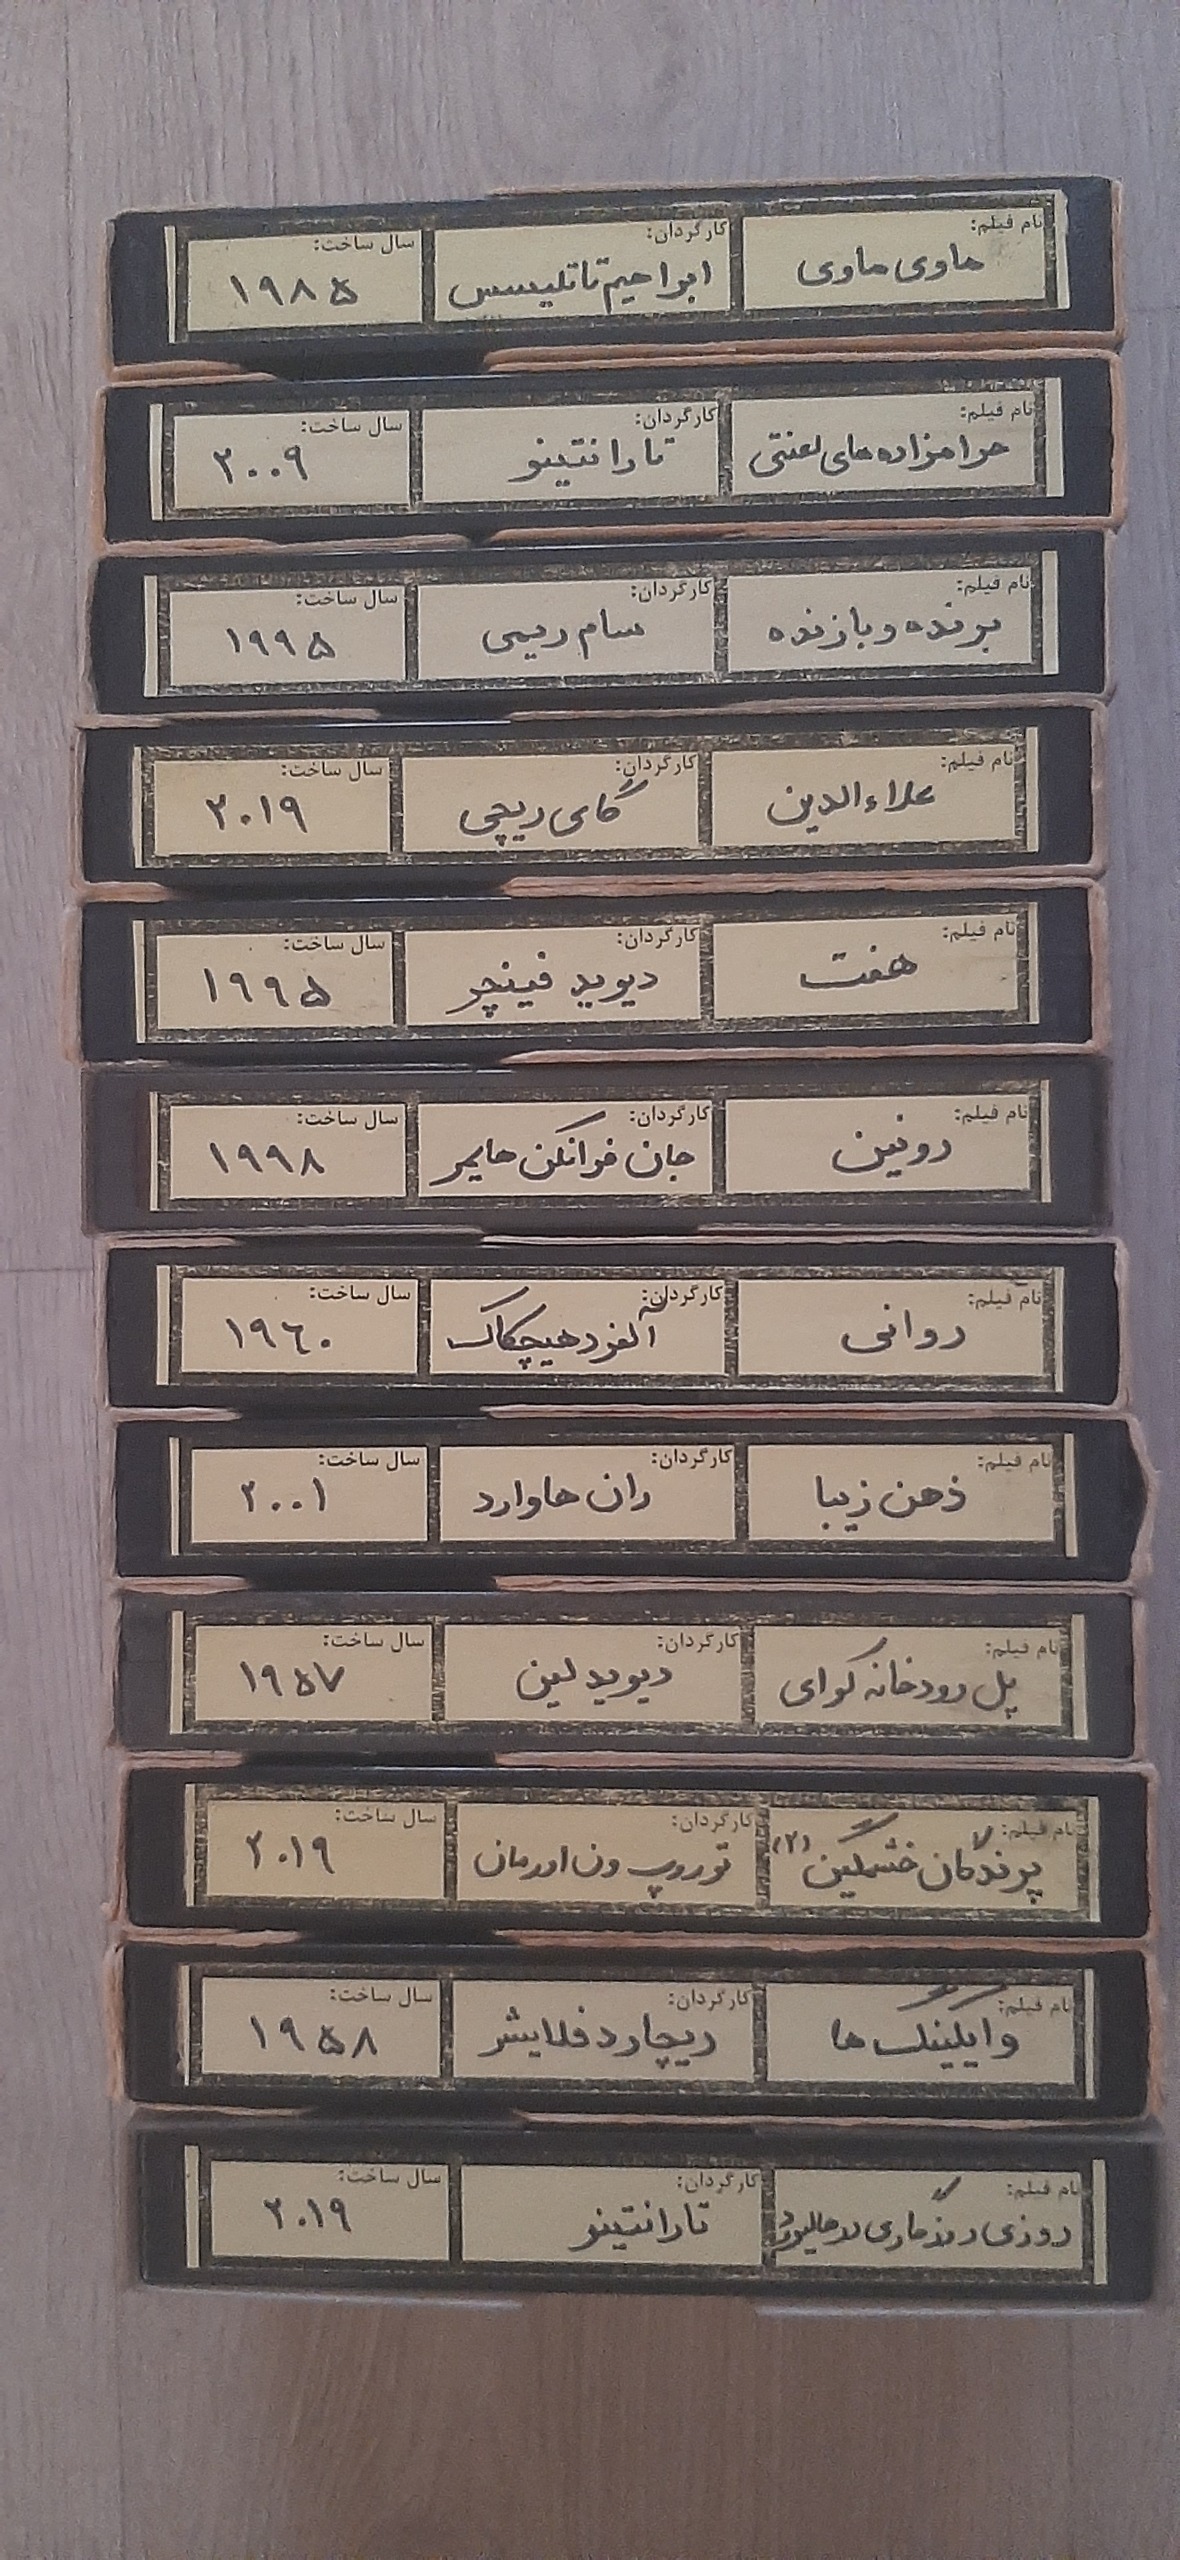 نام فیلم: کارگردان: سال ساخت:
هاوی هاوی ابراهیم تاتلیسس ۱۹۸۵
نام فیلم: کارگردان: سال ساخت:
حرامزاده های لعنتی تارانتینو ۲۰۰۹
نام فیلم: کارگردان: سال ساخت:
برنده و بازنده سام ریمی ۱۹۹۵
نام فیلم: کارگردان: سال ساخت:
علاءالدین گای ریچی ۲۰۱۹
نام فیلم: کارگردان: سال ساخت:
هفت دیوید فینچر ۱۹۹۵
نام فیلم: کارگردان: سال ساخت:
رونین جان فرانکن هایمر ۱۹۹۸
نام فیلم: کارگردان: سال ساخت:
روانی آلفرد هیچکاک ۱۹۶۰
نام فیلم: کارگردان: سال ساخت:
ذهن زیبا ران هاوارد ۲۰۰۱
نام فیلم: کارگردان: سال ساخت:
پل رودخانه کوای دیوید لین ۱۹۵۷
نام فیلم: کارگردان: سال ساخت:
پرندگان خشمگین (۲) توروپ ون اورمان ۲۰۱۹
نام فیلم: کارگردان: سال ساخت:
وایکینگ ها ریچارد فلایشر ۱۹۵۸
نام فیلم: کارگردان: سال ساخت:
روزی روزگاری در هالیوود تارانتینو ۲۰۱۹